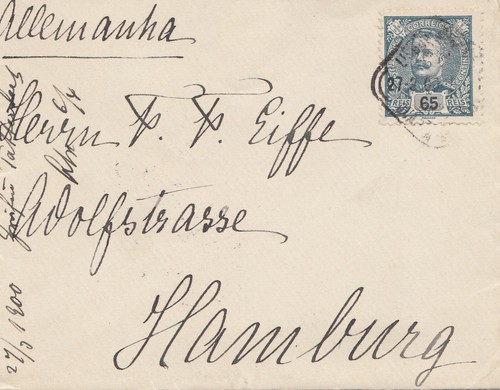 Allemanha
CORREIOS
65
REIS REIS
Herrn F. F. Eiffe
Adolfstrasse
Hamburg
27/3 1900
6/4